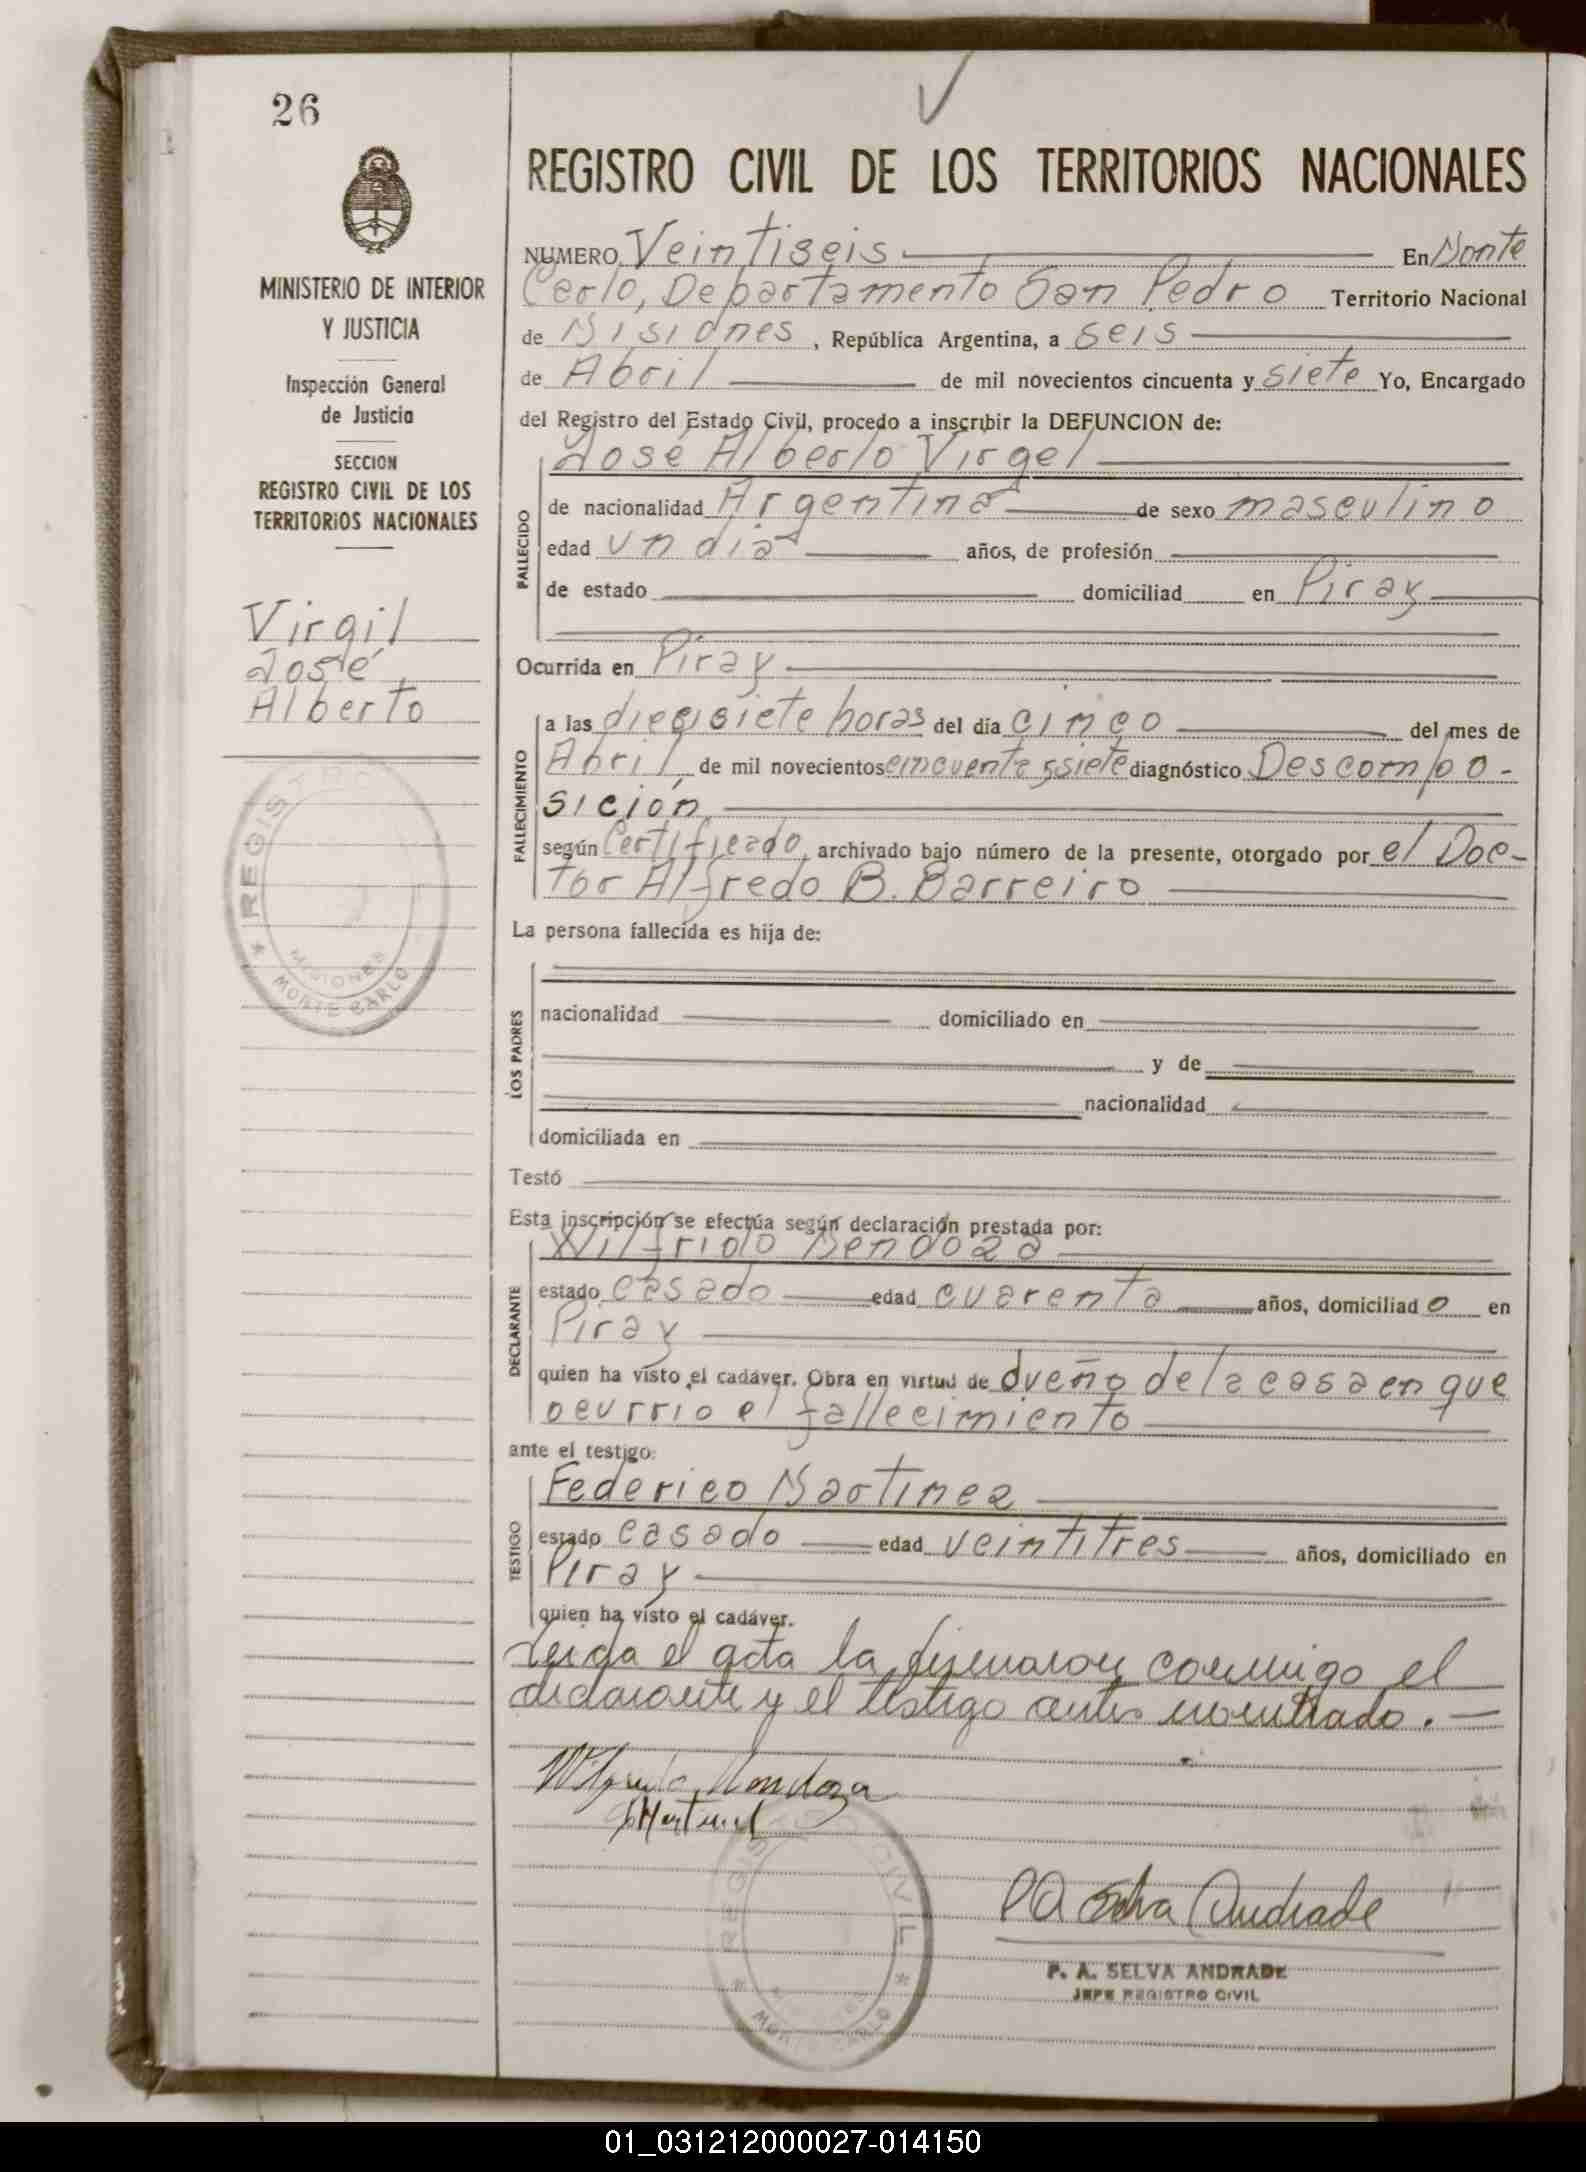 26
MINISTERIO DE INTERIOR
Y JUSTICIA
Inspección General
de Justicia
SECCION
REGISTRO CIVIL DE LOS
TERRITORIOS NACIONALES
Virgil
José
Alberto
REGIS
MISIONES
MONTE CARLO
REGISTRO CIVIL DE LOS TERRITORIOS NACIONALES
NUMERO Veintiseis En Monte
Carlo, Departamento San Pedro Territorio Nacional
de Misiones, República Argentina, a seis
de Abril de mil novecientos cincuenta y siete Yo, Encargado
del Registro del Estado Civil, procedo a inscribir la DEFUNCION de:
José Alberto Virgel
FALLECIDO
de nacionalidad Argentina de sexo masculino
edad un dia años, de profesión
de estado domiciliad en Piray
Ocurrida en Piray
FALLECIMIENTO
a las diecisiete horas del día cinco del mes de
Abril, de mil novecientos cincuenta y siete diagnóstico Descompo-
sición
según Certificado, archivado bajo número de la presente, otorgado por el Doc-
tor Alfredo B. Barreiro
La persona fallecida es hija de:
LOS PADRES
nacionalidad domiciliado en
y de
nacionalidad
domiciliada en
Testó
Esta inscripción se efectúa según declaración prestada por:
Wilfrido Mendoza
DECLARANTE
estado casado edad cuarenta años, domiciliado en
Piray
quien ha visto el cadáver. Obra en virtud de dueño de la casa en que
ocurrio el fallecimiento
ante el testigo:
Federico Martinez
TESTIGO
estado casado edad veintitres años, domiciliado en
Piray
quien ha visto el cadáver.
Leida el acta la firmaron conmigo el
declarante y el testigo antes nombrado.
Wilfrido Mendoza
REGIS CIVIL
MONTE CARLO
PA Selva Andrade
P. A. SELVA ANDRADE
JEFE REGISTRO CIVIL
01_031212000027-014150